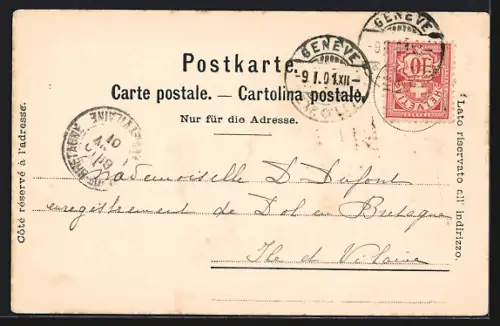 Postkarte.
Carte postale. — Cartolina postale.
Nur für die Adresse.
Côté réservé à l'adresse.
Lato riservato all' indirizzo.
GENÈVE
-9.I.01.XII-
GENÈVE
-9.I.
10
HELVETIA
BRETAGNE
01
Mademoiselle D Dufont
enregistrement de Dol en Bretagne
Ile et Vilaine